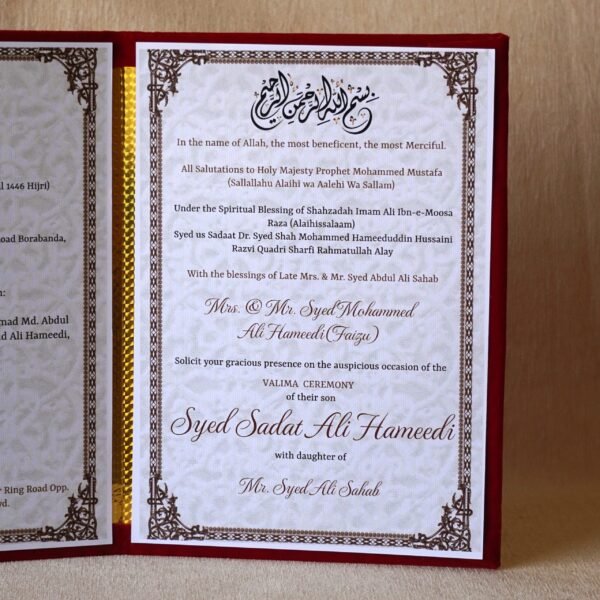 l 1446 Hijri)
oad Borabanda,
n:
mad Md. Abdul
d Ali Hameedi,
r Ring Road Opp.
d.
بسم الله الرحمن الرحيم
In the name of Allah, the most beneficent, the most Merciful.
All Salutations to Holy Majesty Prophet Mohammed Mustafa
(Sallallahu Alaihi wa Aalehi Wa Sallam)
Under the Spiritual Blessing of Shahzadah Imam Ali Ibn-e-Moosa
Raza (Alaihissalaam)
Syed us Sadaat Dr. Syed Shah Mohammed Hameeduddin Hussaini
Razvi Quadri Sharfi Rahmatullah Alay
With the blessings of Late Mrs. & Mr. Syed Abdul Ali Sahab
Mrs. & Mr. Syed Mohammed
Ali Hameedi (Faizu)
Solicit your gracious presence on the auspicious occasion of the
VALIMA CEREMONY
of their son
Syed Sadat Ali Hameedi
with daughter of
Mr. Syed Ali Sahab